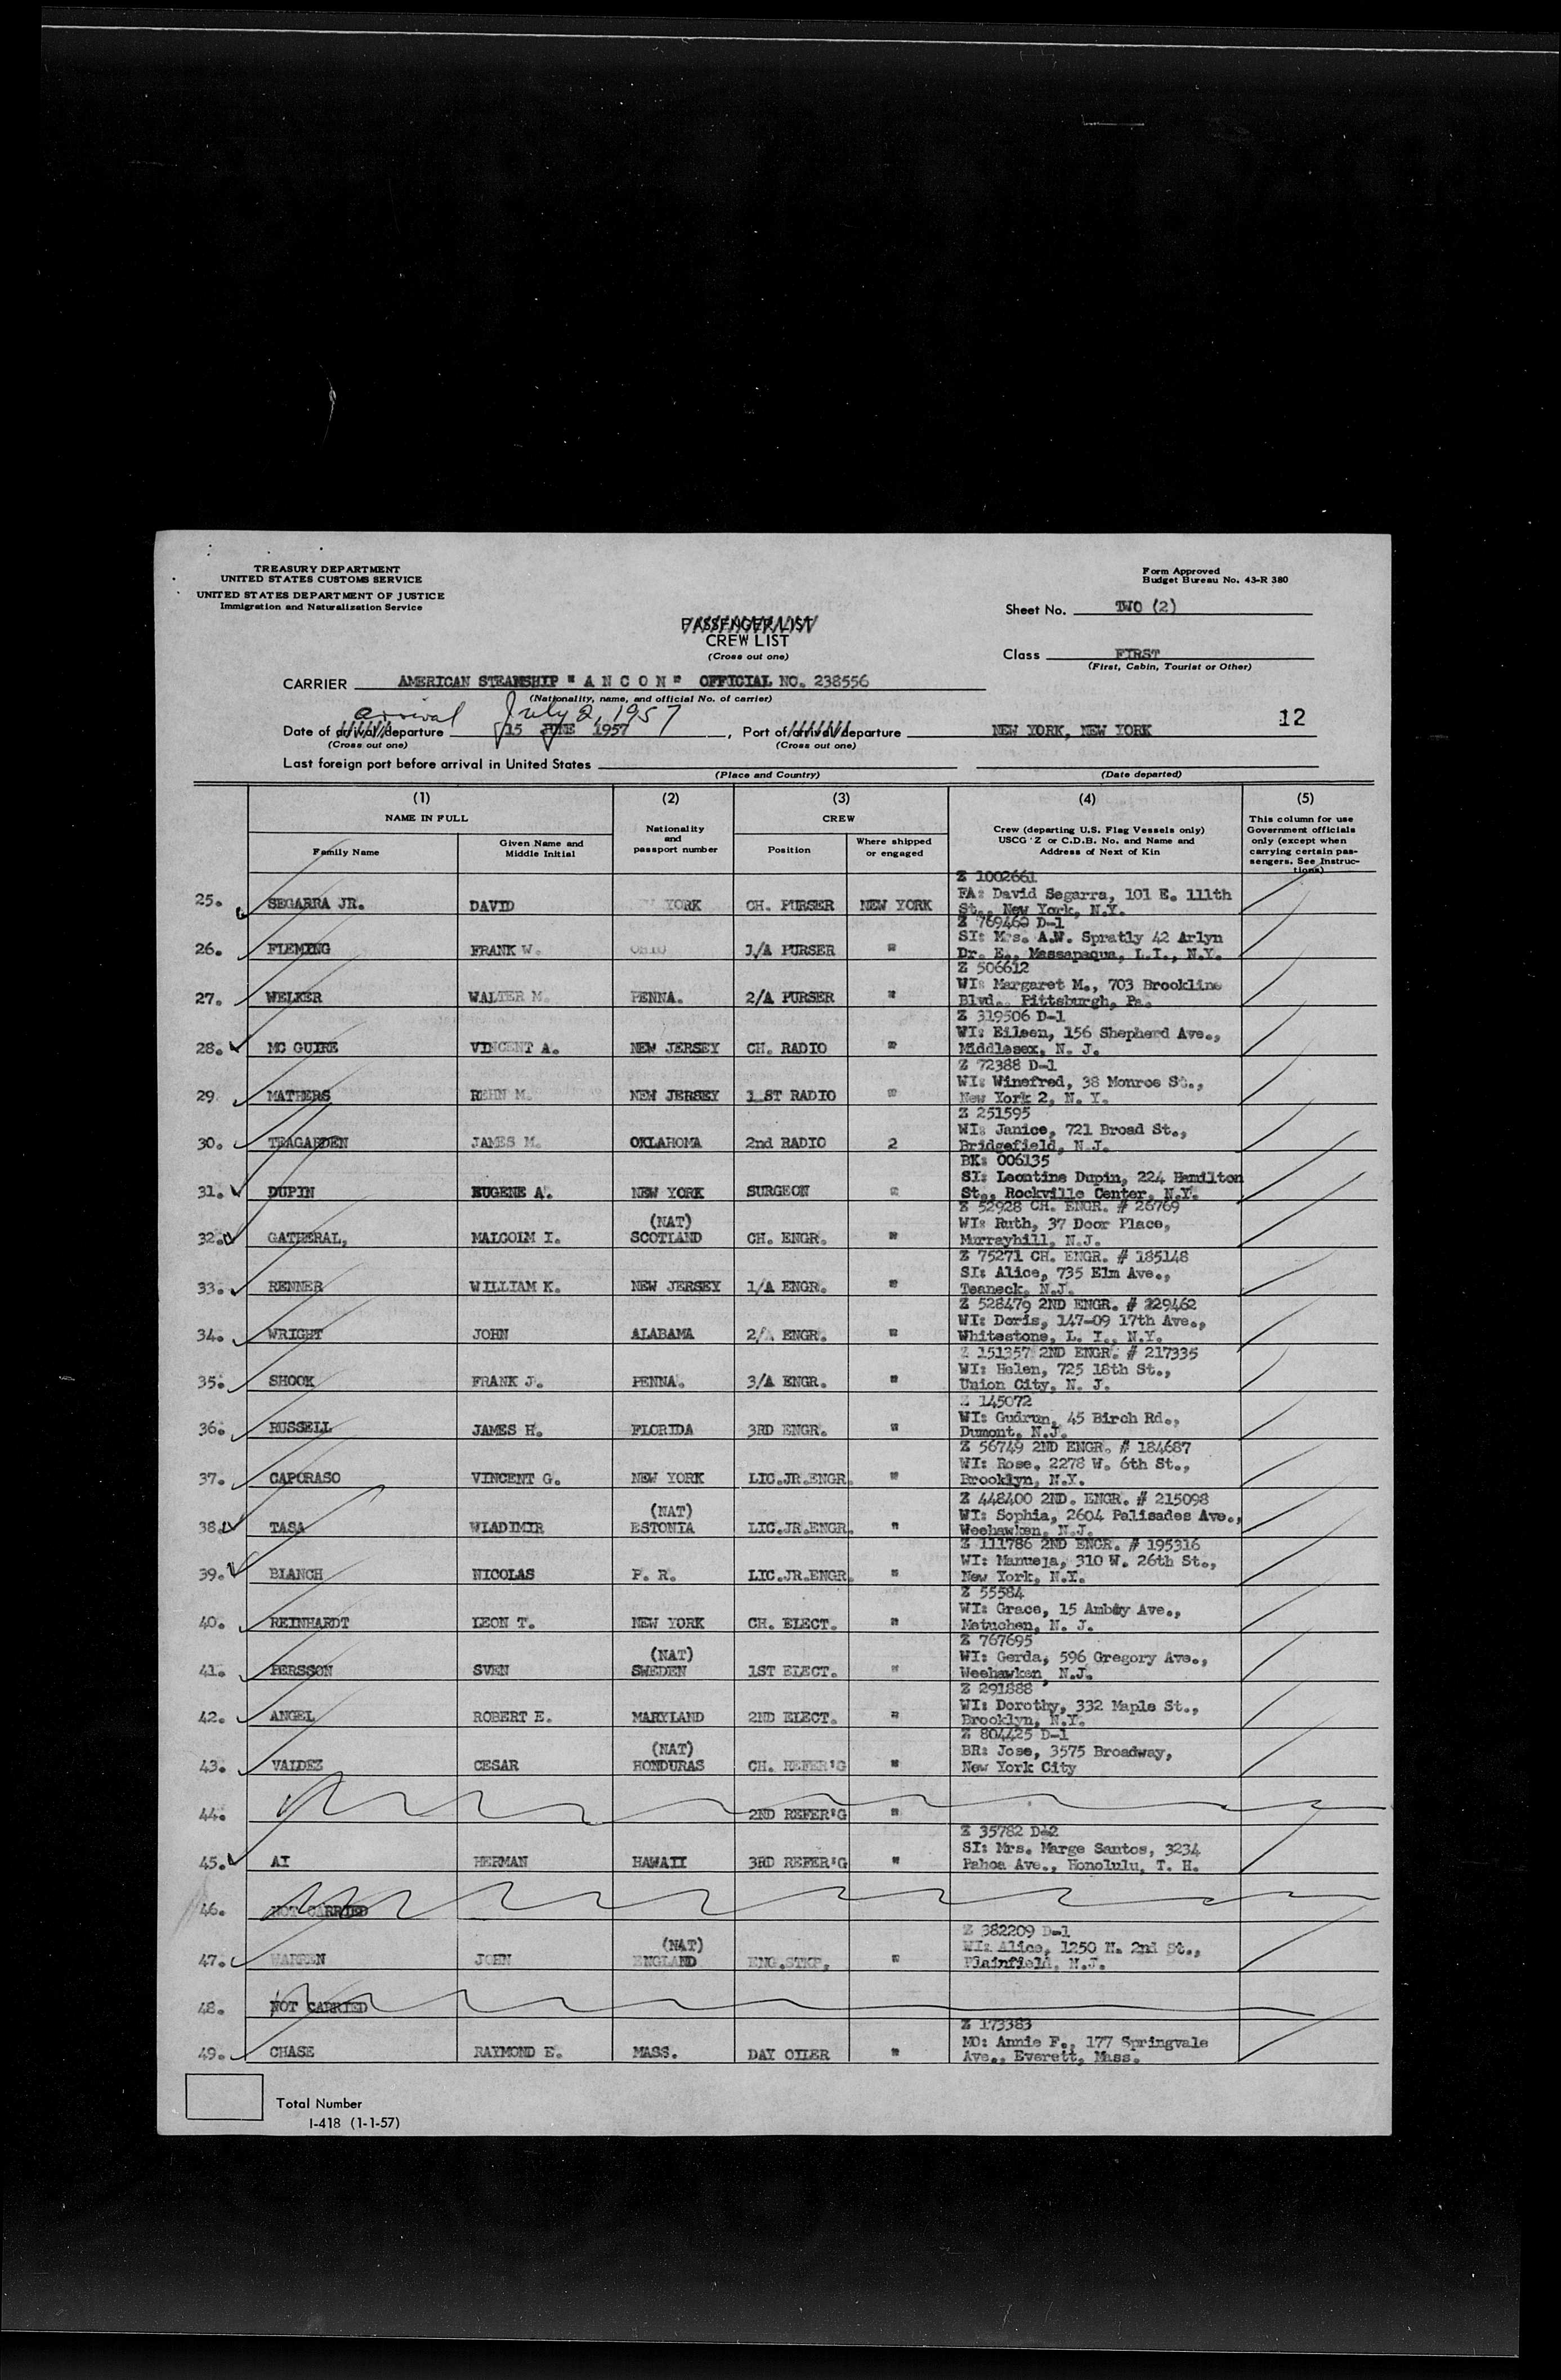 TREASURY DEPARTMENT
UNITED STATES CUSTOMS SERVICE
UNITED STATES DEPARTMENT OF JUSTICE
Immigration and Naturalization Service
Form Approved
Budget Bureau No. 43-R 380
Sheet No. TWO (2)
PASSENGER LIST
CREW LIST
(Cross out one)
Class FIRST
(First, Cabin, Tourist or Other)
CARRIER AMERICAN STEAMSHIP " A N C O N " OFFICIAL NO. 238556
(Nationality, name, and official No. of carrier)
arrival July 2, 1957
12
Date of arrival/departure 15 JUNE 1957, Port of arrival/departure NEW YORK, NEW YORK
(Cross out one) (Cross out one)
Last foreign port before arrival in United States
(Place and Country) (Date departed)
(1) (2) (3) (4) (5)
NAME IN FULL
Family Name
Given Name and Middle Initial
Nationality and passport number
CREW
Position
Where shipped or engaged
Crew (departing U.S. Flag Vessels only)
USCG 'Z or C.D.B. No. and Name and
Address of Next of Kin
This column for use
Government officials
only (except when
carrying certain pas-
sengers. See Instruc-
tions)
Z 1002661
25. SEGARRA JR. DAVID YORK CH. PURSER NEW YORK FA: David Segarra, 101 E. 111th
St., New York, N.Y.
Z 769460 D-1
26. FLEMING FRANK W. OHIO 1/A PURSER " SI: Mrs. A.W. Spratly 42 Arlyn
Dr. E., Massapequa, L.I., N.Y.
Z 506612
27. WELKER WALTER M. PENNA. 2/A PURSER " WI: Margaret M., 703 Brookline
Blvd. Pittsburgh, Pa.
Z 319506 D-1
28. MC GUIRE VINCENT A. NEW JERSEY CH. RADIO " WI: Eileen, 156 Shepherd Ave.,
Middlesex, N. J.
Z 72388 D-1
29 MATHERS REHN M. NEW JERSEY 1 ST RADIO " WI: Winefred, 38 Monroe St.,
New York 2, N. Y.
Z 251595
30. TEAGARDEN JAMES M. OKLAHOMA 2nd RADIO 2 WI: Janice, 721 Broad St.,
Bridgefield, N.J.
BK: 006135
31. DUPIN EUGENE A. NEW YORK SURGEON " SI: Leontine Dupin, 224 Hamilton
St., Rockville Center, N.Y.
Z 52928 CH. ENGR. # 26769
32. GATHERAL, MALCOLM I. (NAT) SCOTLAND CH. ENGR. " WI: Ruth, 37 Door Place,
Murrayhill, N.J.
Z 75271 CH. ENGR. # 185148
33. RENNER WILLIAM K. NEW JERSEY 1/A ENGR. " SI: Alice, 735 Elm Ave.,
Teaneck, N.J.
Z 528479 2ND ENGR. # 229462
34. WRIGHT JOHN ALABAMA 2/A ENGR. " WI: Doris, 147-09 17th Ave.,
Whitestone, L. I., N.Y.
Z 151357 2ND ENGR. # 217335
35. SHOOK FRANK J. PENNA. 3/A ENGR. " WI: Helen, 725 18th St.,
Union City, N. J.
Z 145072
36. RUSSELL JAMES H. FLORIDA 3RD ENGR. " WI: Gudrun, 45 Birch Rd.,
Dumont, N.J.
Z 56749 2ND ENGR. # 184687
37. CAPORASO VINCENT G. NEW YORK LIC.JR.ENGR. " WI: Rose, 2278 W. 6th St.,
Brooklyn, N.Y.
Z 448400 2ND. ENGR. # 215098
38. TASA WLADIMIR (NAT) ESTONIA LIC.JR.ENGR. " WI: Sophia, 2604 Palisades Ave.,
Weehawken, N.J.
Z 111786 2ND ENGR. # 195316
39. BLANCH NICOLAS P. R. LIC.JR.ENGR. " WI: Manueja, 310 W. 26th St.,
New York, N.Y.
Z 55584
40. REINHARDT LEON T. NEW YORK CH. ELECT. " WI: Grace, 15 Amboy Ave.,
Metuchen, N. J.
Z 767695
41. PERSSON SVEN (NAT) SWEDEN 1ST ELECT. " WI: Gerda, 596 Gregory Ave.,
Weehawken, N.J.
Z 291888
42. ANGEL ROBERT E. MARYLAND 2ND ELECT. " WI: Dorothy, 332 Maple St.,
Brooklyn, N.Y.
Z 804425 D-1
43. VALDEZ CESAR (NAT) HONDURAS CH. REFER'G " BR: Jose, 3575 Broadway,
New York City
44. 2ND REFER'G "
Z 35782 D-2
45. AI HERMAN HAWAII 3RD REFER'G " SI: Mrs. Marge Santos, 3234
Pahoa Ave., Honolulu, T. H.
46. NOT CARRIED
Z 382209 D-1
47. WARREN JOHN (NAT) ENGLAND ENG.STKP. " WI: Alice, 1250 N. 2nd St.,
Plainfield, N.J.
48. NOT CARRIED
Z 173383
49. CHASE RAYMOND E. MASS. DAY OILER " MO: Annie F., 177 Springvale
Ave., Everett, Mass.
Total Number
I-418 (1-1-57)